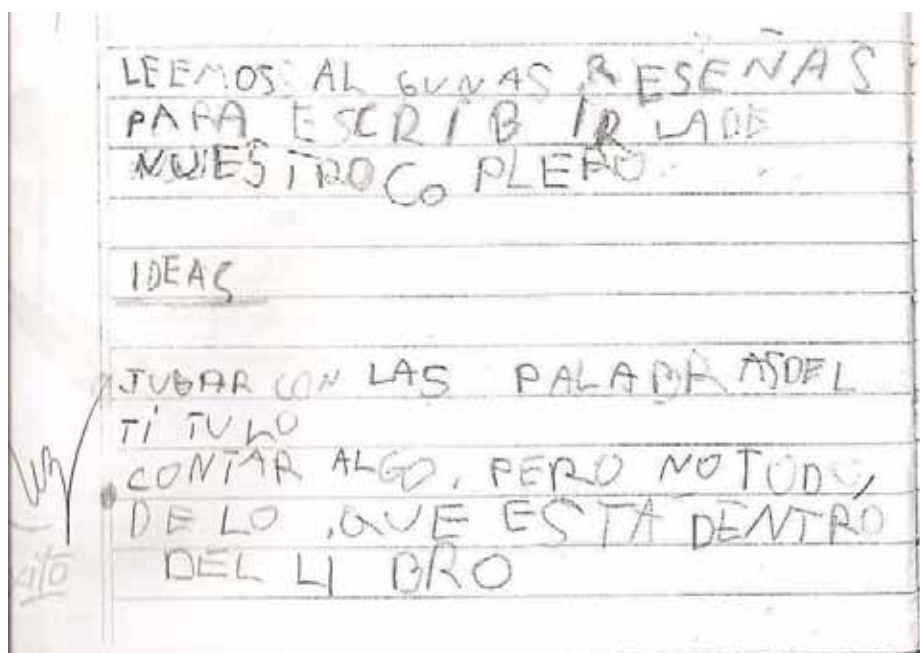 LEEMOS ALGUNAS RESEÑAS
PARA ESCRIBIR LA DE
NUESTRO COPLERO.
IDEAS
JUGAR CON LAS PALABRAS DEL
TÍTULO
CONTAR ALGO, PERO NO TODO,
DE LO, QUE ESTÁ DENTRO
DEL LIBRO